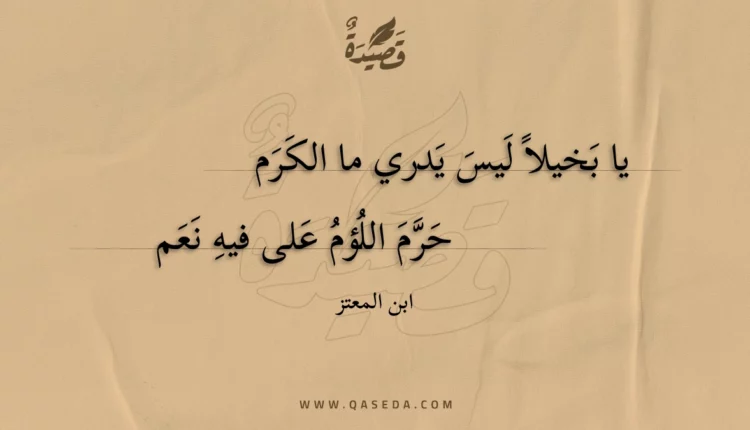 قَصِيدَةٌ
يا بَخيلاً لَيسَ يَدري ما الكَرَم
حَرَّمَ اللُؤمُ عَلى فيهِ نَعَم
ابن المعتز
WWW.QASEDA.COM